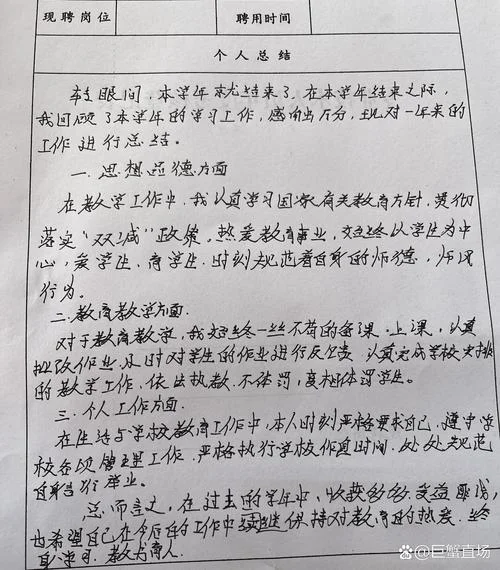 现聘岗位
聘用时间
个人总结
转眼间,本学年就结束了,在本学年结束之际,
我回顾了本学年的学习工作,感慨万分,现对一年来的
工作进行总结。
一、思想品德方面
在教学工作中,我认真学习国家有关教育方针,贯彻
落实“双减”政策。热爱教育事业,始终以学生为中
心,爱学生,育学生,时刻规范着自身的师德,师风
行为。
二、教育教学方面.
对于教育教学,我始终一丝不苟的备课,上课,认真
批改作业,及时对学生的作业进行反馈,认真完成学校安排
的教学工作,依法执教,不体罚,变相体罚学生。
三、个人工作方面.
在生活与学校教育工作中,本人时刻严格要求自己,遵守学
校各项管理工作,严格执行学校作息时间,处处规范
自身言行举止。
总而言之,在过去的学年中,收获多多,受益匪浅,
也希望自己在今后的工作中继续保持对教育的热爱,终
身学习,教书育人.
@巨蟹直场